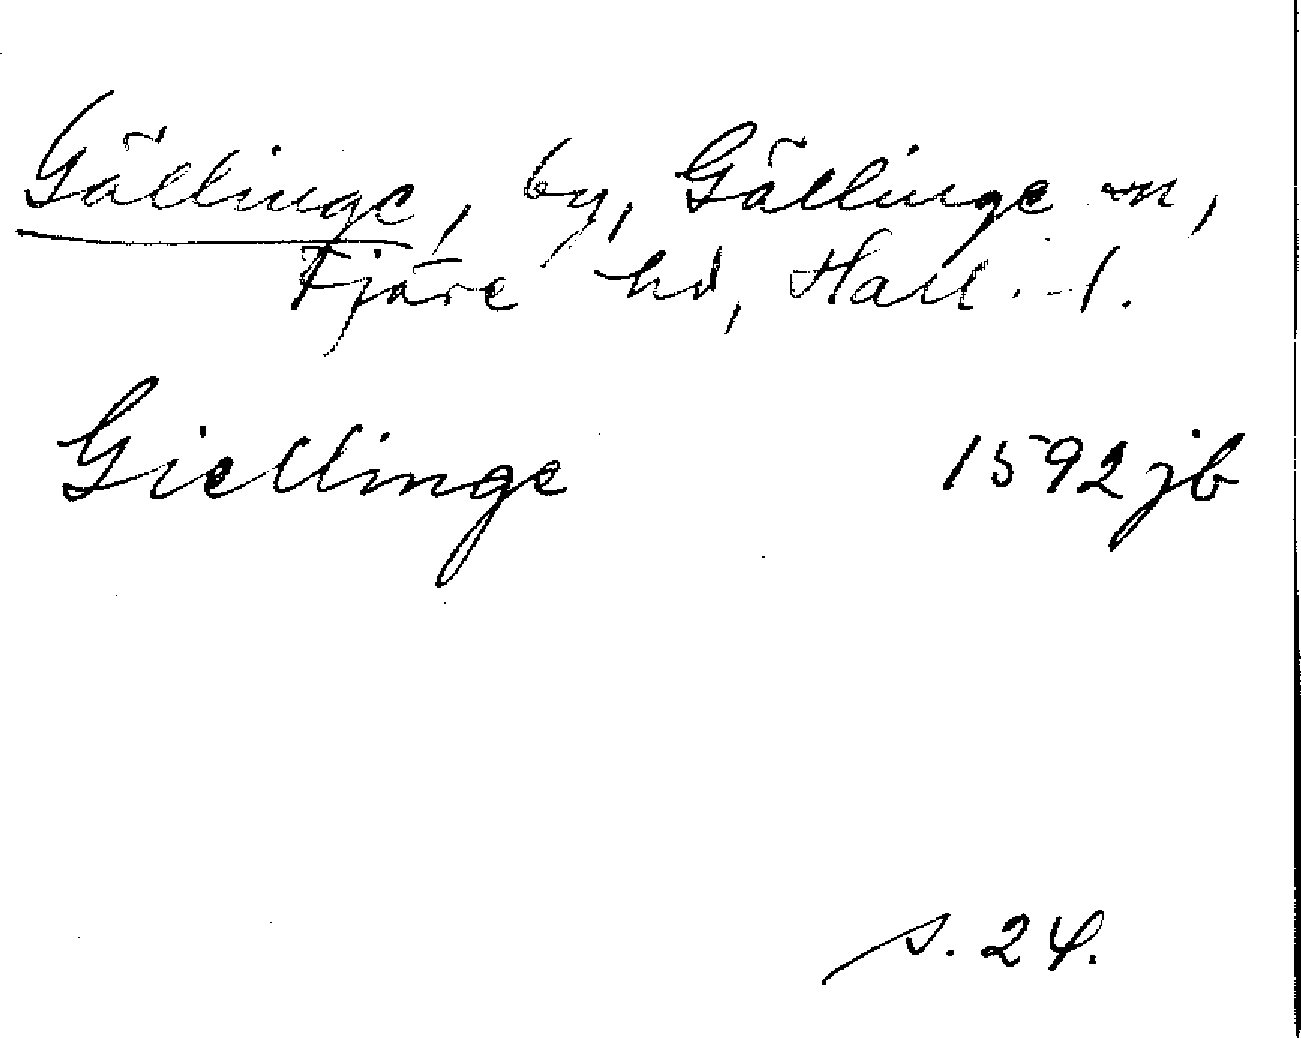 Gällinge, by, Gällinge sn,
Fjäre hd, Hall. l.
Giellinge 1592 jb
s. 24.